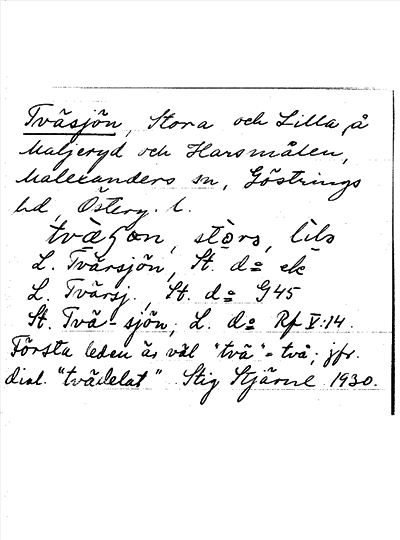 Tväsjön, Stora och Lilla, å
Maljeryd och Harsmålen,
Malexanders sn, Göstrings
hd, Österg. l.
tväʃon, stòra, lila
L. Tvärsjön, St. d:o ek
L. Tvärsj., St. d:o G45
St. Tvä-sjön, L. d:o Rf V:14.
Första leden är väl "tvä" = två; jfr.
dial. "tvädelat" Stig Stjärne 1930.